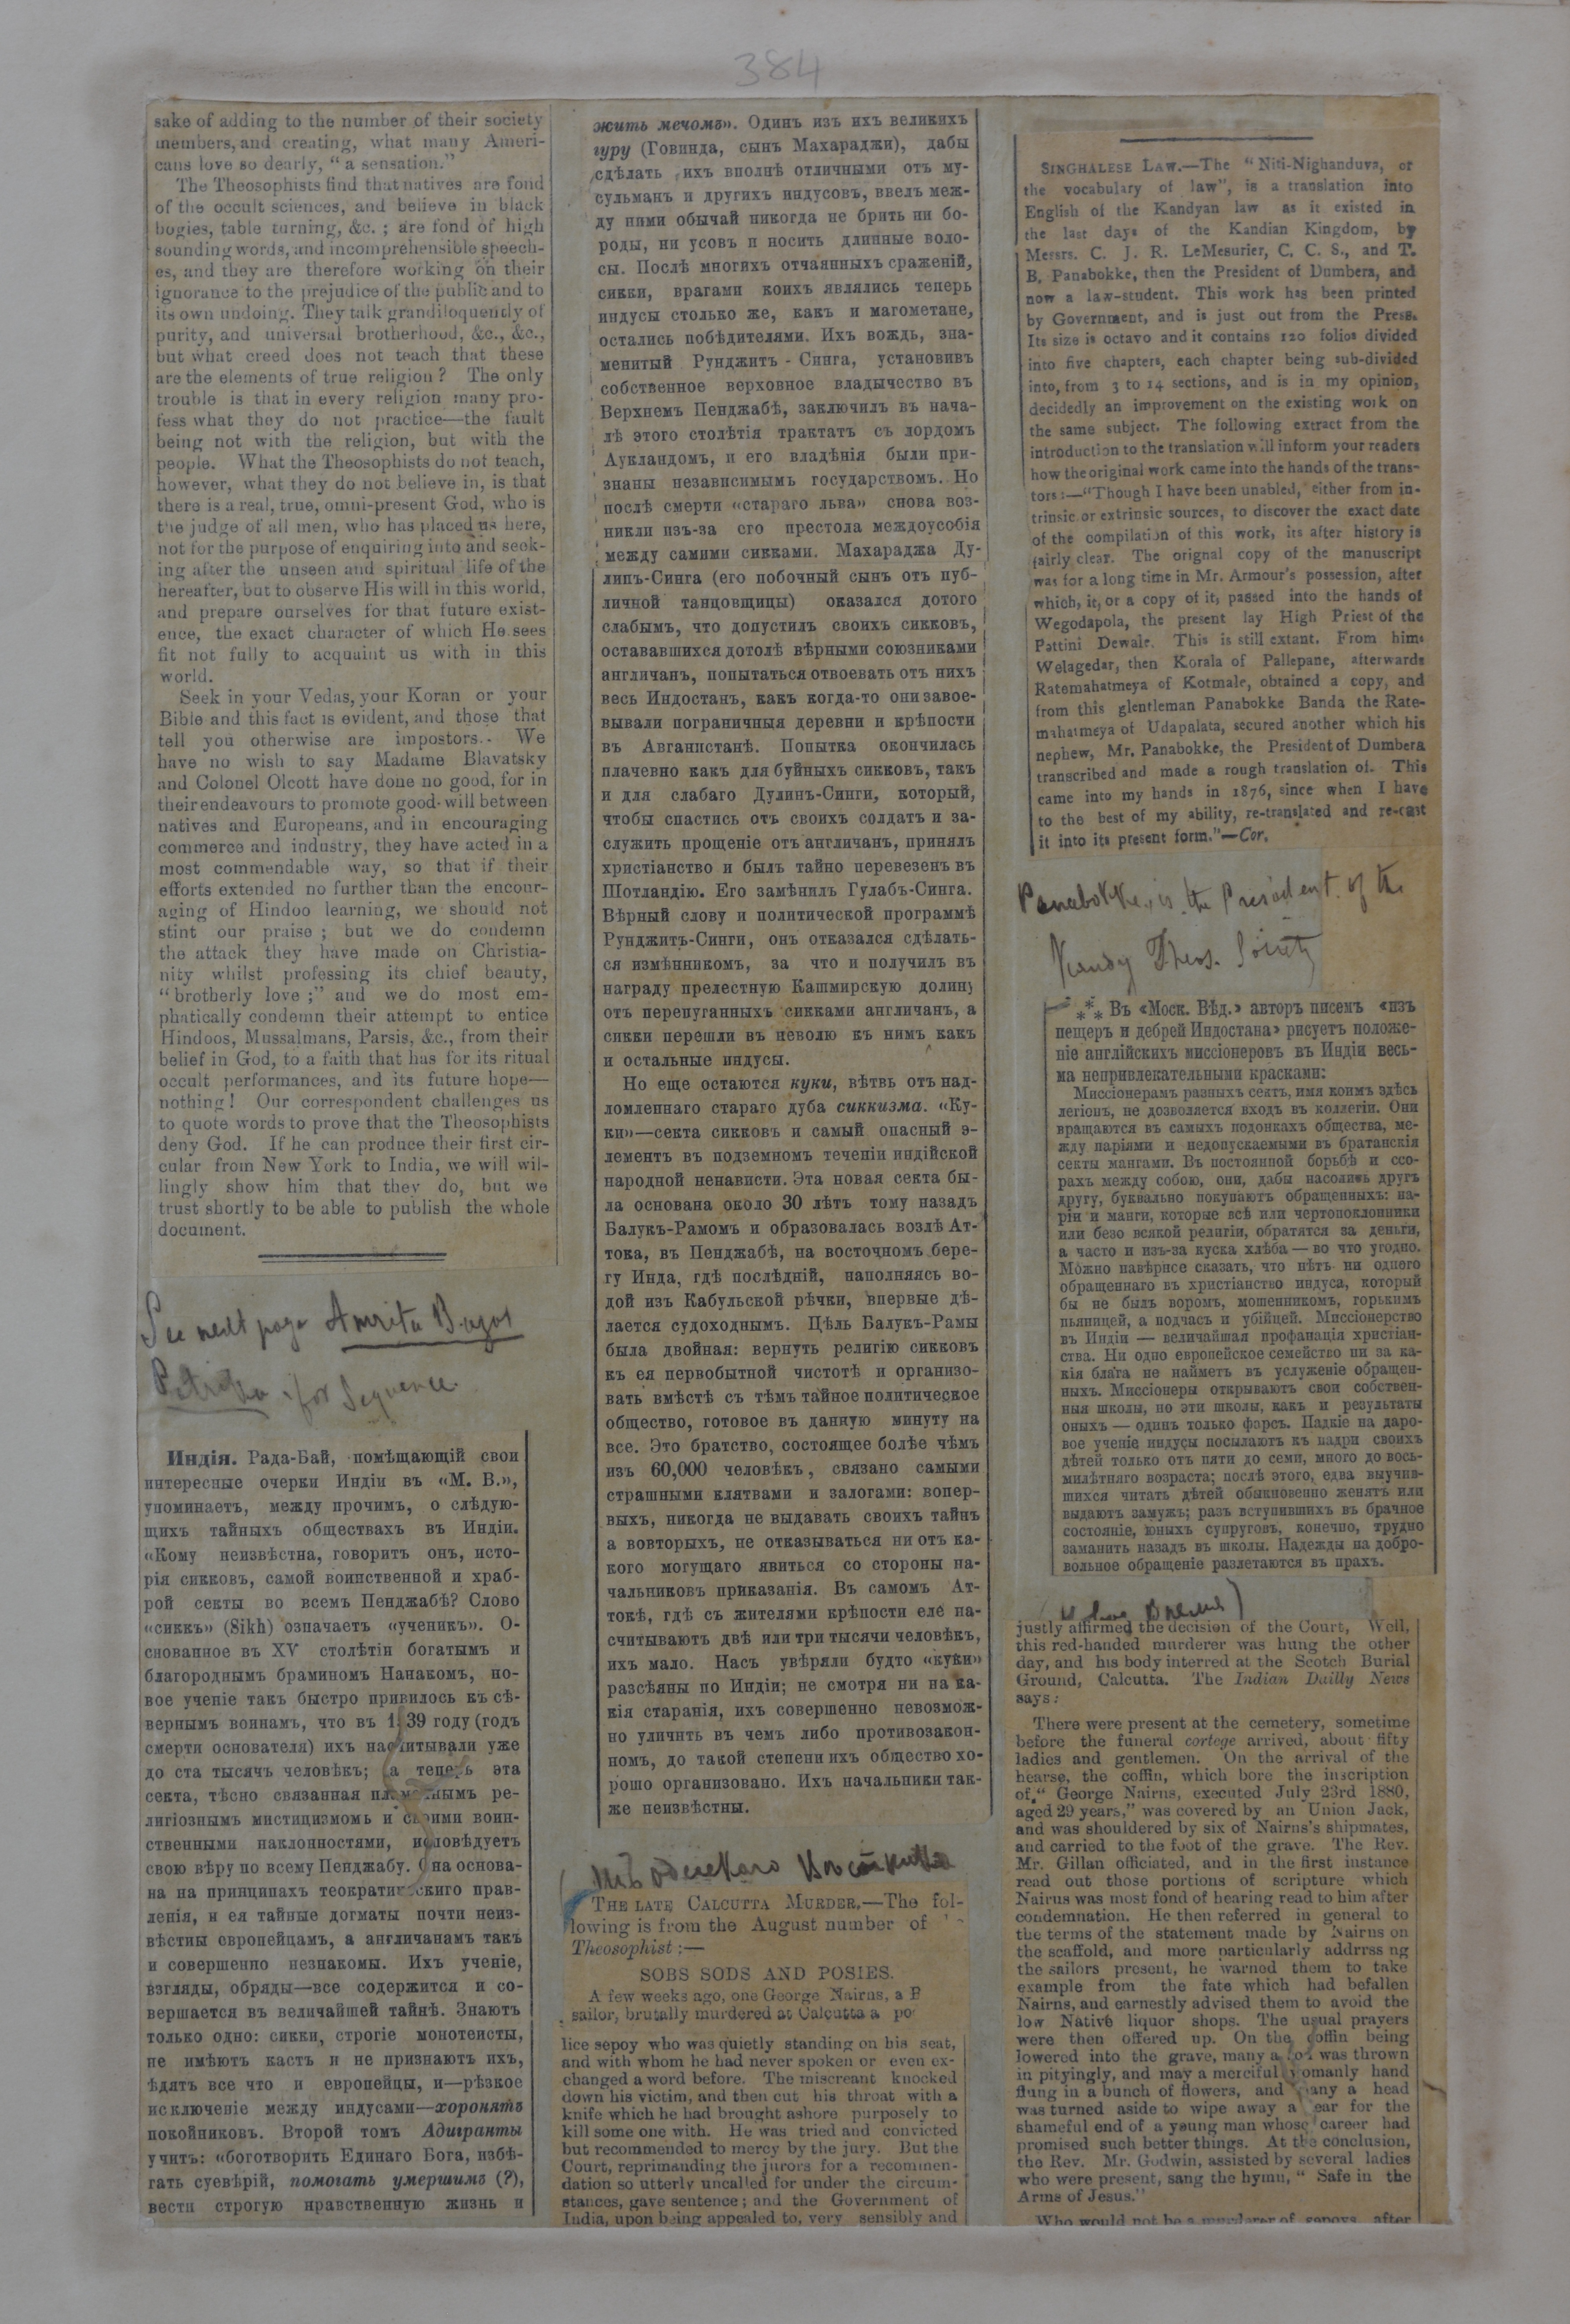 384
sake of adding to the number of their society
members, and creating, what many Ameri-
cans love so dearly, "a sensation."
The Theosophists find that natives are fond
of the occult sciences, and believe in black
bogies, table turning, &c. ; are fond of high
sounding words, and incomprehensible speech-
es, and they are therefore working on their
ignorance to the prejudice of the public and to
its own undoing. They talk grandiloquently of
purity, and universal brotherhood, &c., &c.,
but what creed does not teach that these
are the elements of true religion ? The only
trouble is that in every religion many pro-
fess what they do not practice—the fault
being not with the religion, but with the
people. What the Theosophists do not teach,
however, what they do not believe in, is that
there is a real, true, omni-present God, who is
the judge of all men, who has placed us here,
not for the purpose of enquiring into and seek-
ing after the unseen and spiritual life of the
hereafter, but to observe His will in this world,
and prepare ourselves for that future exist-
ence, the exact character of which He sees
fit not fully to acquaint us with in this
world.
Seek in your Vedas, your Koran or your
Bible and this fact is evident, and those that
tell you otherwise are impostors.. We
have no wish to say Madame Blavatsky
and Colonel Olcott have done no good, for in
their endeavours to promote good-will between
natives and Europeans, and in encouraging
commerce and industry, they have acted in a
most commendable way, so that if their
efforts extended no further than the encour-
aging of Hindoo learning, we should not
stint our praise ; but we do condemn
the attack they have made on Christia-
nity whilst professing its chief beauty,
"brotherly love ;" and we do most em-
phatically condemn their attempt to entice
Hindoos, Mussalmans, Parsis, &c., from their
belief in God, to a faith that has for its ritual
occult performances, and its future hope—
nothing! Our correspondent challenges us
to quote words to prove that the Theosophists
deny God. If he can produce their first cir-
cular from New York to India, we will wil-
lingly show him that they do, but we
trust shortly to be able to publish the whole
document.
See next page Amrita Bazar
Patrika for Sequence.
Индія. Рада-Бай, помѣщающій свои
интересные очерки Индіи въ «М. В.»,
упоминаетъ, между прочимъ, о слѣдую-
щихъ тайныхъ обществахъ въ Индіи.
«Кому неизвѣстна, говоритъ онъ, исто-
рія сикковъ, самой воинственной и храб-
рой секты во всемъ Пенджабѣ? Слово
«сиккъ» (Sikh) означаетъ «ученикъ». О-
снованное въ XV столѣтіи богатымъ и
благороднымъ браминомъ Нанакомъ, но-
вое ученіе такъ быстро привилось къ сѣ-
вернымъ воинамъ, что въ 1539 году (годъ
смерти основателя) ихъ насчитывали уже
до ста тысячъ человѣкъ; а теперь эта
секта, тѣсно связанная пламеннымъ ре-
лигіознымъ мистицизмомъ и своими воин-
ственными наклонностями, исповѣдуетъ
свою вѣру по всему Пенджабу. Она основа-
на на принципахъ теократическиго прав-
ленія, и ея тайные догматы почти неиз-
вѣстны европейцамъ, а англичанамъ такъ
и совершенно незнакомы. Ихъ ученіе,
взгляды, обряды—все содержится и со-
вершается въ величайшей тайнѣ. Знаютъ
только одно: сикки, строгіе монотеисты,
не имѣютъ кастъ и не признаютъ ихъ,
ѣдятъ все что и европейцы, и—рѣзкое
исключеніе между индусами—хоронятъ
покойниковъ. Второй томъ Адигранты
учитъ: «боготворить Единаго Бога, избѣ-
гать суевѣрій, помогать умершимъ (?),
вести строгую нравственную жизнь и
жить мечомъ». Одинъ изъ ихъ великихъ
гуру (Говинда, сынъ Махараджи), дабы
сдѣлать ихъ вполнѣ отличными отъ му-
сульманъ и другихъ индусовъ, ввелъ меж-
ду ними обычай никогда не брить ни бо-
роды, ни усовъ и носить длинные воло-
сы. Послѣ многихъ отчаянныхъ сраженій,
сикки, врагами коихъ являлись теперь
индусы столько же, какъ и магометане,
остались побѣдителями. Ихъ вождь, зна-
менитый Рунджитъ-Синга, установивъ
собственное верховное владычество въ
Верхнемъ Пенджабѣ, заключилъ въ нача-
лѣ этого столѣтія трактатъ съ лордомъ
Аукландомъ, и его владѣнія были при-
знаны независимымъ государствомъ. Но
послѣ смерти «стараго льва» снова воз-
никли изъ-за его престола междоусобія
между самими сикками. Махараджа Ду-
липъ-Синга (его побочный сынъ отъ пуб-
личной танцовщицы) оказался дотого
слабымъ, что допустилъ своихъ сикковъ,
остававшихся дотолѣ вѣрными союзниками
англичанъ, попытаться отвоевать отъ нихъ
весь Индостанъ, какъ когда-то они завое-
вывали пограничныя деревни и крѣпости
въ Авганистанѣ. Попытка окончилась
плачевно какъ для буйныхъ сикковъ, такъ
и для слабаго Дулинъ-Синги, который,
чтобы спастись отъ своихъ солдатъ и за-
служить прощеніе отъ англичанъ, принялъ
христіанство и былъ тайно перевезенъ въ
Шотландію. Его замѣнилъ Гулабъ-Синга.
Вѣрный слову и политической программѣ
Рунджитъ-Синги, онъ отказался сдѣлать-
ся измѣнникомъ, за что и получилъ въ
награду прелестную Кашмирскую долину
отъ перепуганныхъ сикками англичанъ, а
сикки перешли въ неволю къ нимъ какъ
и остальные индусы.
Но еще остаются куки, вѣтвь отъ над-
ломленнаго стараго дуба сиккизма. «Ку-
ки»—секта сикковъ и самый опасный э-
лементъ въ подземномъ теченіи индійской
народной ненависти. Эта новая секта бы-
ла основана около 30 лѣтъ тому назадъ
Балукъ-Рамомъ и образовалась возлѣ Ат-
тока, въ Пенджабѣ, на восточномъ бере-
гу Инда, гдѣ послѣдній, наполняясь во-
дой изъ Кабульской рѣчки, впервые дѣ-
лается судоходнымъ. Цѣль Балукъ-Рамы
была двойная: вернуть религію сикковъ
къ ея первобытной чистотѣ и организо-
вать вмѣстѣ съ тѣмъ тайное политическое
общество, готовое въ данную минуту на
все. Это братство, состоящее болѣе чѣмъ
изъ 60,000 человѣкъ, связано самыми
страшными клятвами и залогами: вопер-
выхъ, никогда не выдавать своихъ тайнъ
а вовторыхъ, не отказываться ни отъ ка-
кого могущаго явиться со стороны на-
чальниковъ приказанія. Въ самомъ Ат-
токѣ, гдѣ съ жителями крѣпости еле на-
считываютъ двѣ или три тысячи человѣкъ,
ихъ мало. Насъ увѣряли будто «куки»
разсѣяны по Индіи; не смотря ни на ка-
кія старанія, ихъ совершенно невозмож-
но уличить въ чемъ либо противозакон-
номъ, до такой степени ихъ общество хо-
рошо организовано. Ихъ начальники так-
же неизвѣстны.
THE LATE CALCUTTA MURDER.—The fol-
lowing is from the August number of
Theosophist :—
SOBS SODS AND POSIES.
A few weeks ago, one George Nairns, a
sailor, brutally murdered at Calcutta a po
lice sepoy who was quietly standing on his seat,
and with whom he had never spoken or even ex-
changed a word before. The miscreant knocked
down his victim, and then cut his throat with a
knife which he had brought ashore purposely to
kill some one with. He was tried and convicted
but recommended to mercy by the jury. But the
Court, reprimanding the jurors for a recommen-
dation so utterly uncalled for under the circum-
stances, gave sentence; and the Government of
India, upon being appealed to, very sensibly and
SINGHALESE LAW.—The "Niti-Nighanduva, or
the vocabulary of law", is a translation into
English of the Kandyan law as it existed in
the last days of the Kandian Kingdom, by
Mersrs. C. J. R. LeMesurier, C. C. S., and T.
B. Panabokke, then the President of Dumbera, and
now a law-student. This work has been printed
by Government, and is just out from the Press.
Its size is octavo and it contains 120 folios divided
into five chapters, each chapter being sub-divided
into, from 3 to 14 sections, and is in my opinion,
decidedly an improvement on the existing work on
the same subject. The following extract from the
introduction to the translation will inform your readers
how the original work came into the hands of the trans-
tors :—"Though I have been unabled, either from in-
trinsic or extrinsic sources, to discover the exact date
of the compilation of this work, its after history is
fairly clear. The orignal copy of the manuscript
was for a long time in Mr. Armour's possession, after
which, it, or a copy of it, passed into the hands of
Wegodapola, the present lay High Priest of the
Pattini Dewale. This is still extant. From him
Welagedar, then Korala of Pallepane, afterwards
Ratemahatmeya of Kotmale, obtained a copy, and
from this glentleman Panabokke Banda the Rate-
mahatmeya of Udapalata, secured another which his
nephew, Mr. Panabokke, the President of Dumbera
transcribed and made a rough translation of. This
came into my hands in 1876, since when I have
to the best of my ability, re-translated and re-cast
it into its present form."—Cor.
Panabokke, is the President of the
Kandy Theos. Society
⁂ Въ «Моск. Вѣд.» авторъ писемъ «изъ
пещеръ и дебрей Индостана» рисуетъ положе-
ніе англійскихъ миссіонеровъ въ Индіи весь-
ма непривлекательными красками:
Миссіонерамъ разныхъ сектъ, имя коимъ здѣсь
легіонъ, не дозволяется входъ въ коллегіи. Они
вращаются въ самыхъ подонкахъ общества, ме-
жду паріями и недопускаемыми въ братанскія
секты мангами. Въ постоянной борьбѣ и ссо-
рахъ между собою, они, дабы насолить другъ
другу, буквально покупаютъ обращенныхъ: па-
ріи и манги, которые всѣ или чертопоклонники
или безо всякой религіи, обратятся за деньги,
а часто и изъ-за куска хлѣба — во что угодно.
Можно навѣрное сказать, что нѣтъ ни одного
обращеннаго въ христіанство индуса, который
бы не былъ воромъ, мошенникомъ, горькимъ
пьяницей, а подчасъ и убійцей. Миссіонерство
въ Индіи — величайшая профанація христіан-
ства. Ни одно европейское семейство ни за ка-
кія блага не найметъ въ услуженіе обращен-
ныхъ. Миссіонеры открываютъ свои собствен-
ныя школы, но эти школы, какъ и результаты
оныхъ — одинъ только фарсъ. Падкіе на даро-
вое ученіе индусы посылаютъ къ падри своихъ
дѣтей только отъ пяти до семи, много до вось-
милѣтняго возраста; послѣ этого, едва выучив-
шихся читать дѣтей обыкновенно женятъ или
выдаютъ замужъ; разъ вступившихъ въ брачное
состояніе, юныхъ супруговъ, конечно, трудно
заманить назадъ въ школы. Надежды на добро-
вольное обращеніе разлетаются въ прахъ.
justly affirmed the decision of the Court, Well,
this red-handed murderer was hung the other
day, and his body interred at the Scotch Burial
Ground, Calcutta. The Indian Dailly News
says :
There were present at the cemetery, sometime
before the funeral cortege arrived, about fifty
ladies and gentlemen. On the arrival of the
hearse, the coffin, which bore the inscription
of "George Nairns, executed July 23rd 1880,
aged 29 years," was covered by an Union Jack,
and was shouldered by six of Nairns's shipmates,
and carried to the foot of the grave. The Rev.
Mr. Gillan officiated, and in the first instance
read out those portions of scripture which
Nairus was most fond of hearing read to him after
condemnation. He then referred in general to
the terms of the statement made by Nairns on
the scaffold, and more particularly addrrss ng
the sailors present, he warned them to take
example from the fate which had befallen
Nairns, and earnestly advised them to avoid the
low Native liquor shops. The usual prayers
were then offered up. On the coffin being
lowered into the grave, many a sod was thrown
in pityingly, and may a merciful womanly hand
flung in a bunch of flowers, and many a head
was turned aside to wipe away a tear for the
shameful end of a young man whose career had
promised such better things. At the conclusion,
the Rev. Mr. Godwin, assisted by several ladies
who were present, sang the hymn, "Safe in the
Arms of Jesus."
Who would not be a murderer of sepoys, after